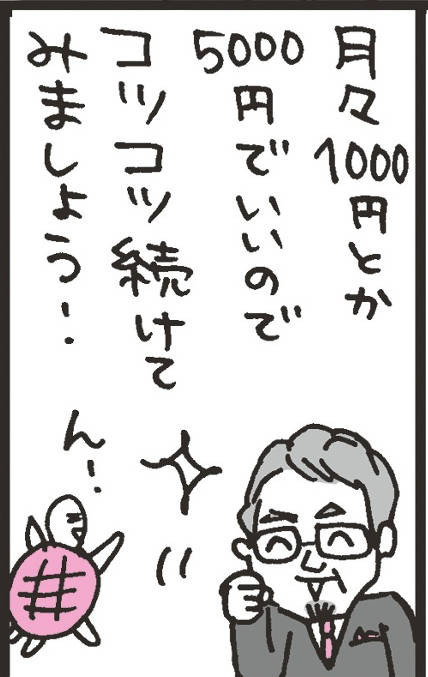 月々1000円とか
5000円でいいので
コツコツ続けて
みましょう!
ん!